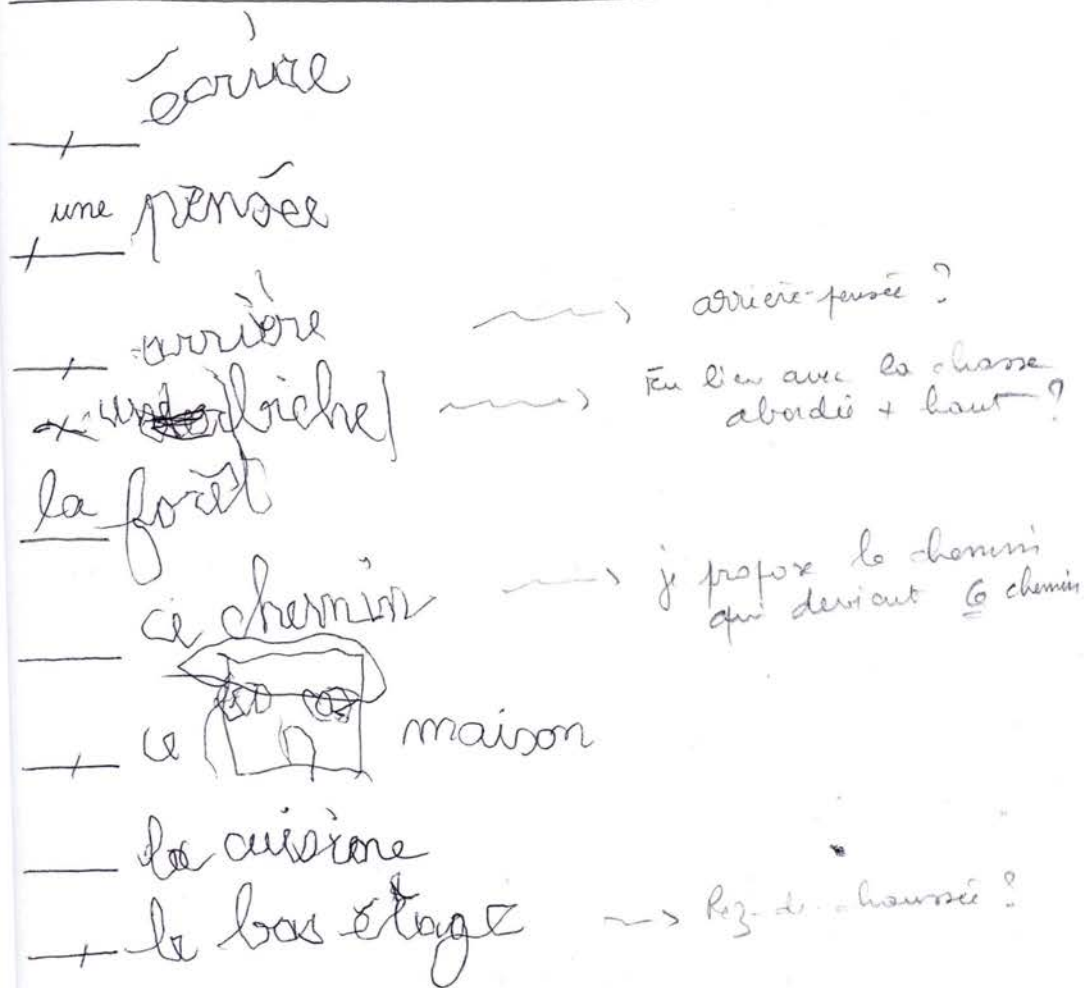 écrire
une pensée
arrière → arrière-pensée ?
une biche → En lien avec la chasse
abordée + haut ?
la forêt
ce chemin → je propose le chemin
qui devient ce chemin
ce maison
la cuisine
le bas étage → Rez-de-chaussée ?